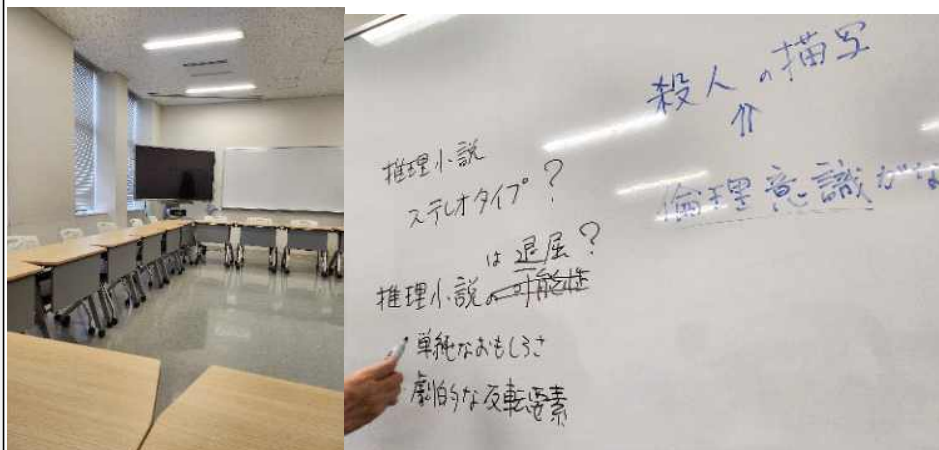 殺人の描写
⇑
倫理意識がな
推理小説
ステレオタイプ?
は退屈?
推理小説の可能性
・単純なおもしろさ
劇的な反転要素